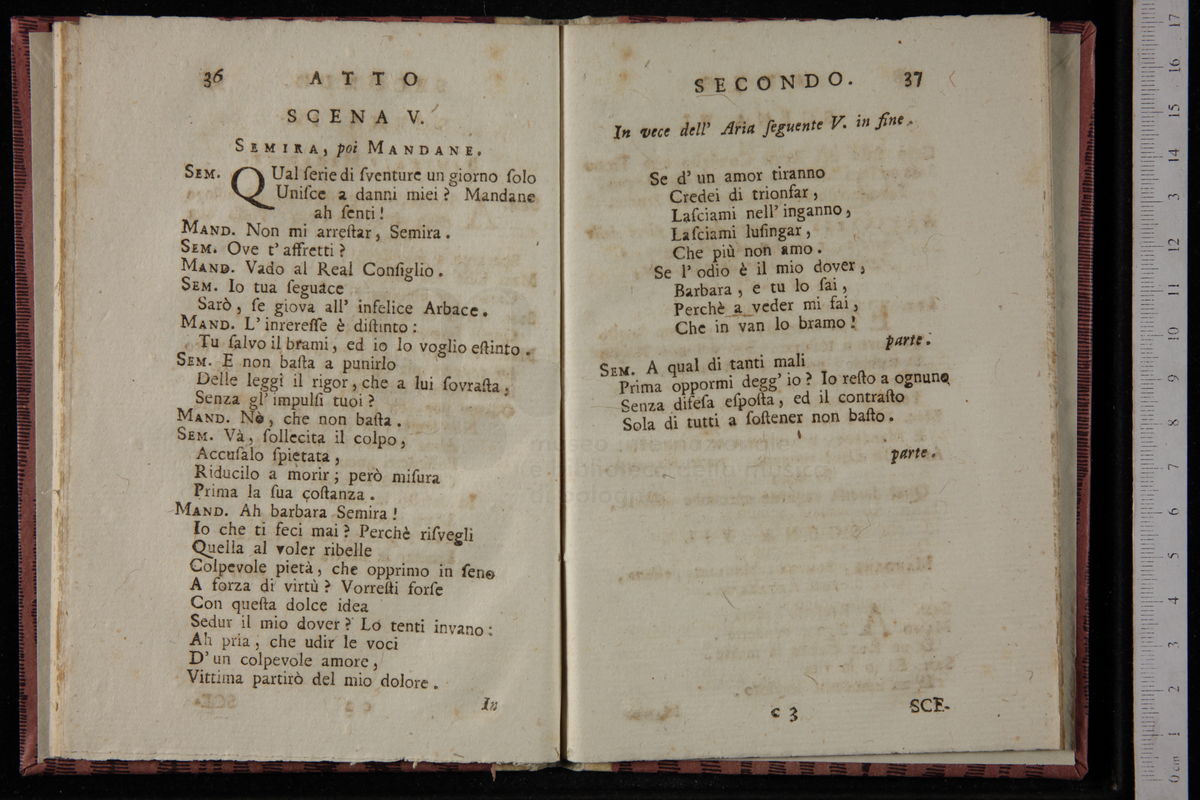 36 ATTO
SCENA V.
SEMIRA, poi MANDANE.
SEM. QUal ſerie di ſventure un giorno ſolo
Uniſce a danni miei? Mandane
ah ſenti!
MAND. Non mi arreſtar, Semira.
SEM. Ove t' affretti?
MAND. Vado al Real Conſiglio.
SEM. Io tua ſeguace
Sarò, ſe giova all' infelice Arbace.
MAND. L' inrereſſe è diſtinto:
Tu ſalvo il brami, ed io lo voglio eſtinto.
SEM. E non baſta a punirlo
Delle leggi il rigor, che a lui ſovraſta,
Senza gl' impulſi tuoi?
MAND. Nò, che non baſta.
SEM. Và, ſollecita il colpo,
Accuſalo ſpietata,
Riducilo a morir; però miſura
Prima la ſua coſtanza.
MAND. Ah barbara Semira!
Io che ti feci mai? Perchè riſvegli
Quella al voler ribelle
Colpevole pietà, che opprimo in ſeno
A forza di virtù? Vorreſti forſe
Con queſta dolce idea
Sedur il mio dover? Lo tenti invano:
Ah pria, che udir le voci
D' un colpevole amore,
Vittima partirò del mio dolore.
In
SECONDO. 37
In vece dell' Aria ſeguente V. in fine.
Se d' un amor tiranno
Credei di trionfar,
Laſciami nell' inganno,
Laſciami luſingar,
Che più non amo.
Se l' odio è il mio dover,
Barbara, e tu lo ſai,
Perchè a veder mi fai,
Che in van lo bramo!
parte.
SEM. A qual di tanti mali
Prima oppormi degg' io? Io reſto a ognuno
Senza difeſa eſpoſta, ed il contraſto
Sola di tutti a ſoſtener non baſto.
parte.
c 3 SCE-
museo internazionale
e biblioteca della musica
di bologna
0 cm 1 2 3 4 5 6 7 8 9 10 11 12 13 14 15 16 17